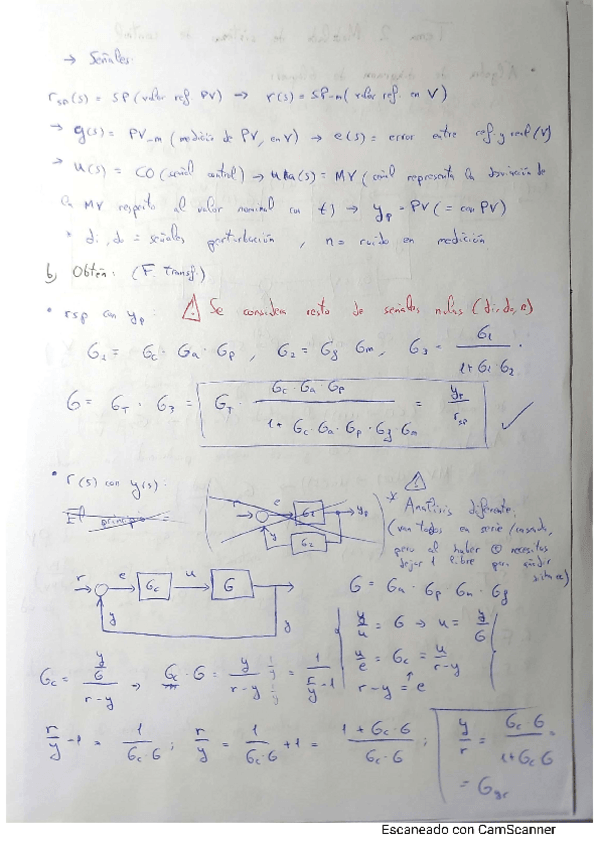 → Señales:
r_sp(s) = SP (valor ref PV) → r(s) = SP_m (valor ref. en V)
→ y(s) = PV_m (medición de PV, en V) → e(s) = error entre ref. y real (V)
→ u(s) = CO (señal control) → ua(s) = MV (señal representa la desviación de
la MV respecto al valor nominal con t) → y_p = PV (= con PV)
* di, do = señales perturbación, n = ruido en medición
b) Obtén: (F. Transf.)
• rsp con y_p: ⚠ Se considera resto de señales nulas (di, do, n)
G_1 = G_c · G_a · G_p, G_2 = G_g G_m, G_3 = G_1 / (1 + G_1 · G_2).
G = G_T · G_3 = G_T · (G_c · G_a · G_p) / (1 + G_c · G_a · G_p · G_g · G_m) = y_p / r_sp ✓
• r(s) con y(s):
El principio =
r e G_1 y_p
y G_2
⚠
* Análisis diferente:
(van todos en serie
pero al haber necesitas
dejar 1 libre para añadir
r e G_c u G
y y
G = G_a · G_p G_m · G_g
y/u = G → u = y/G
u/e = G_c = u/(r-y)
r - y = e
G_c = (y/G) / (r-y) → G_c · G = y/(r-y) (1/y)/(1/y) = 1 / (r/y - 1)
r/y - 1 = 1/(G_c · G); r/y = 1/(G_c · G) + 1 = (1 + G_c · G)/(G_c · G); y/r = (G_c · G)/(1 + G_c G) =
= G_yr
Escaneado con CamScanner